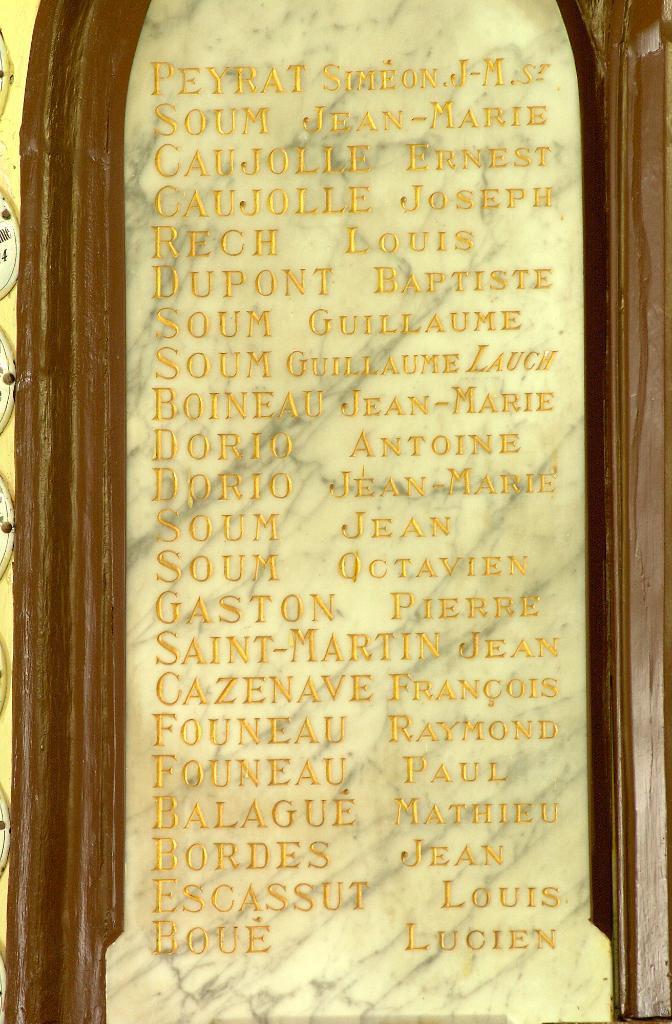 PEYRAT SIMÉON.J-M.ST
SOUM JEAN-MARIE
CAUJOLLE ERNEST
CAUJOLLE JOSEPH
RECH LOUIS
DUPONT BAPTISTE
SOUM GUILLAUME
SOUM GUILLAUME LAUCH
BOINEAU JEAN-MARIE
DORIO ANTOINE
DORIO JEAN-MARIE
SOUM JEAN
SOUM OCTAVIEN
GASTON PIERRE
SAINT-MARTIN JEAN
CAZENAVE FRANÇOIS
FOUNEAU RAYMOND
FOUNEAU PAUL
BALAGUÉ MATHIEU
BORDES JEAN
ESCASSUT LOUIS
BOUÉ LUCIEN